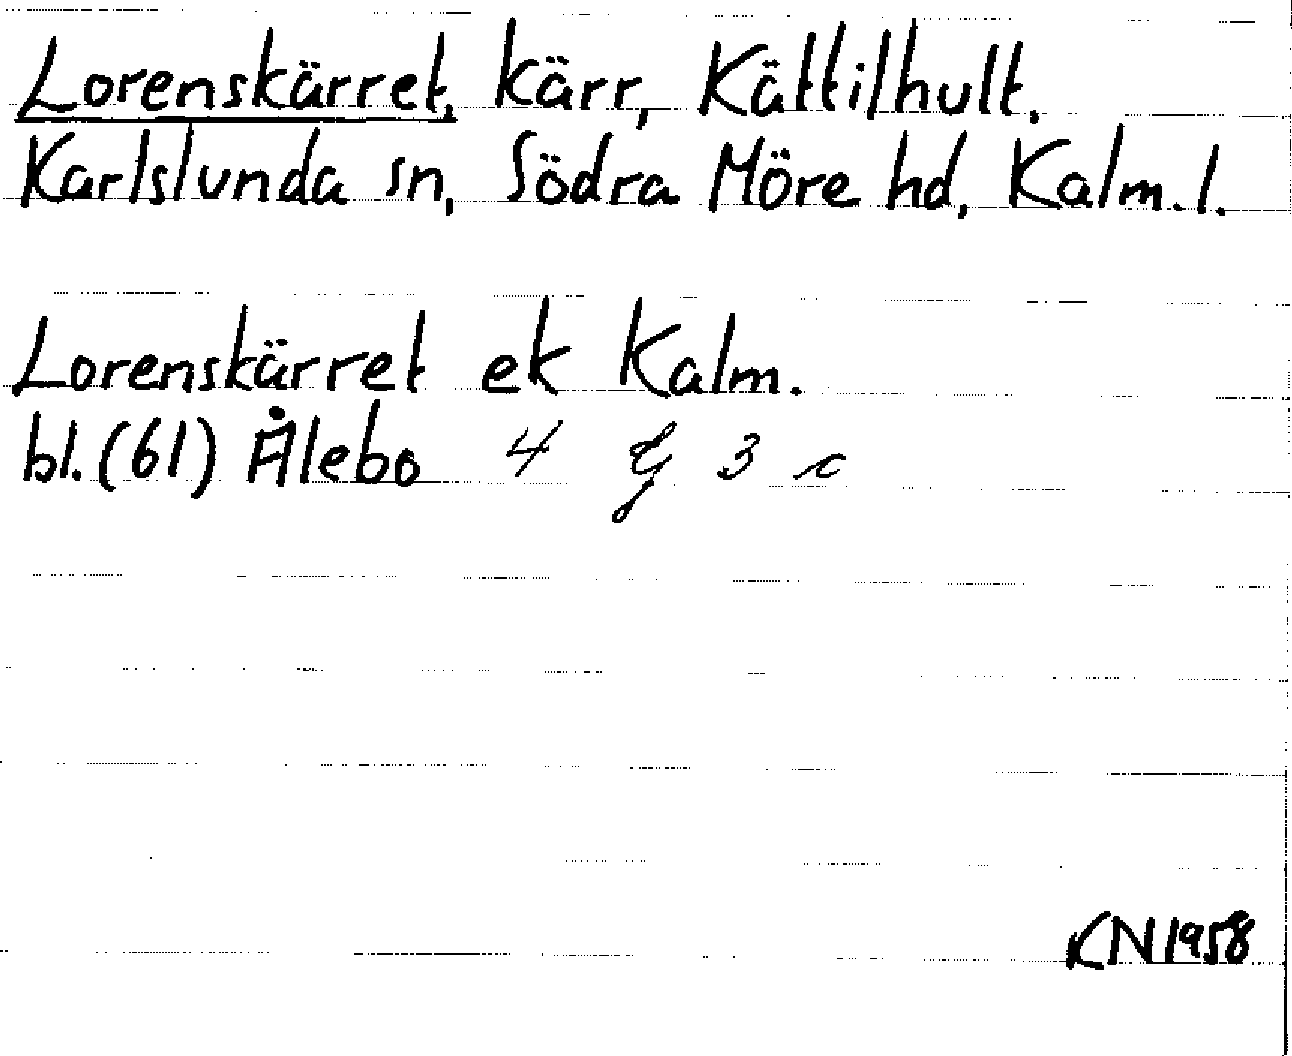 Lorenskärret, kärr, Kättilhult,
Karlslunda sn, Södra Möre hd, Kalm. l.
Lorenskärret ek Kalm.
bl. (61) Ålebo 4 G 3 c
KN 1958